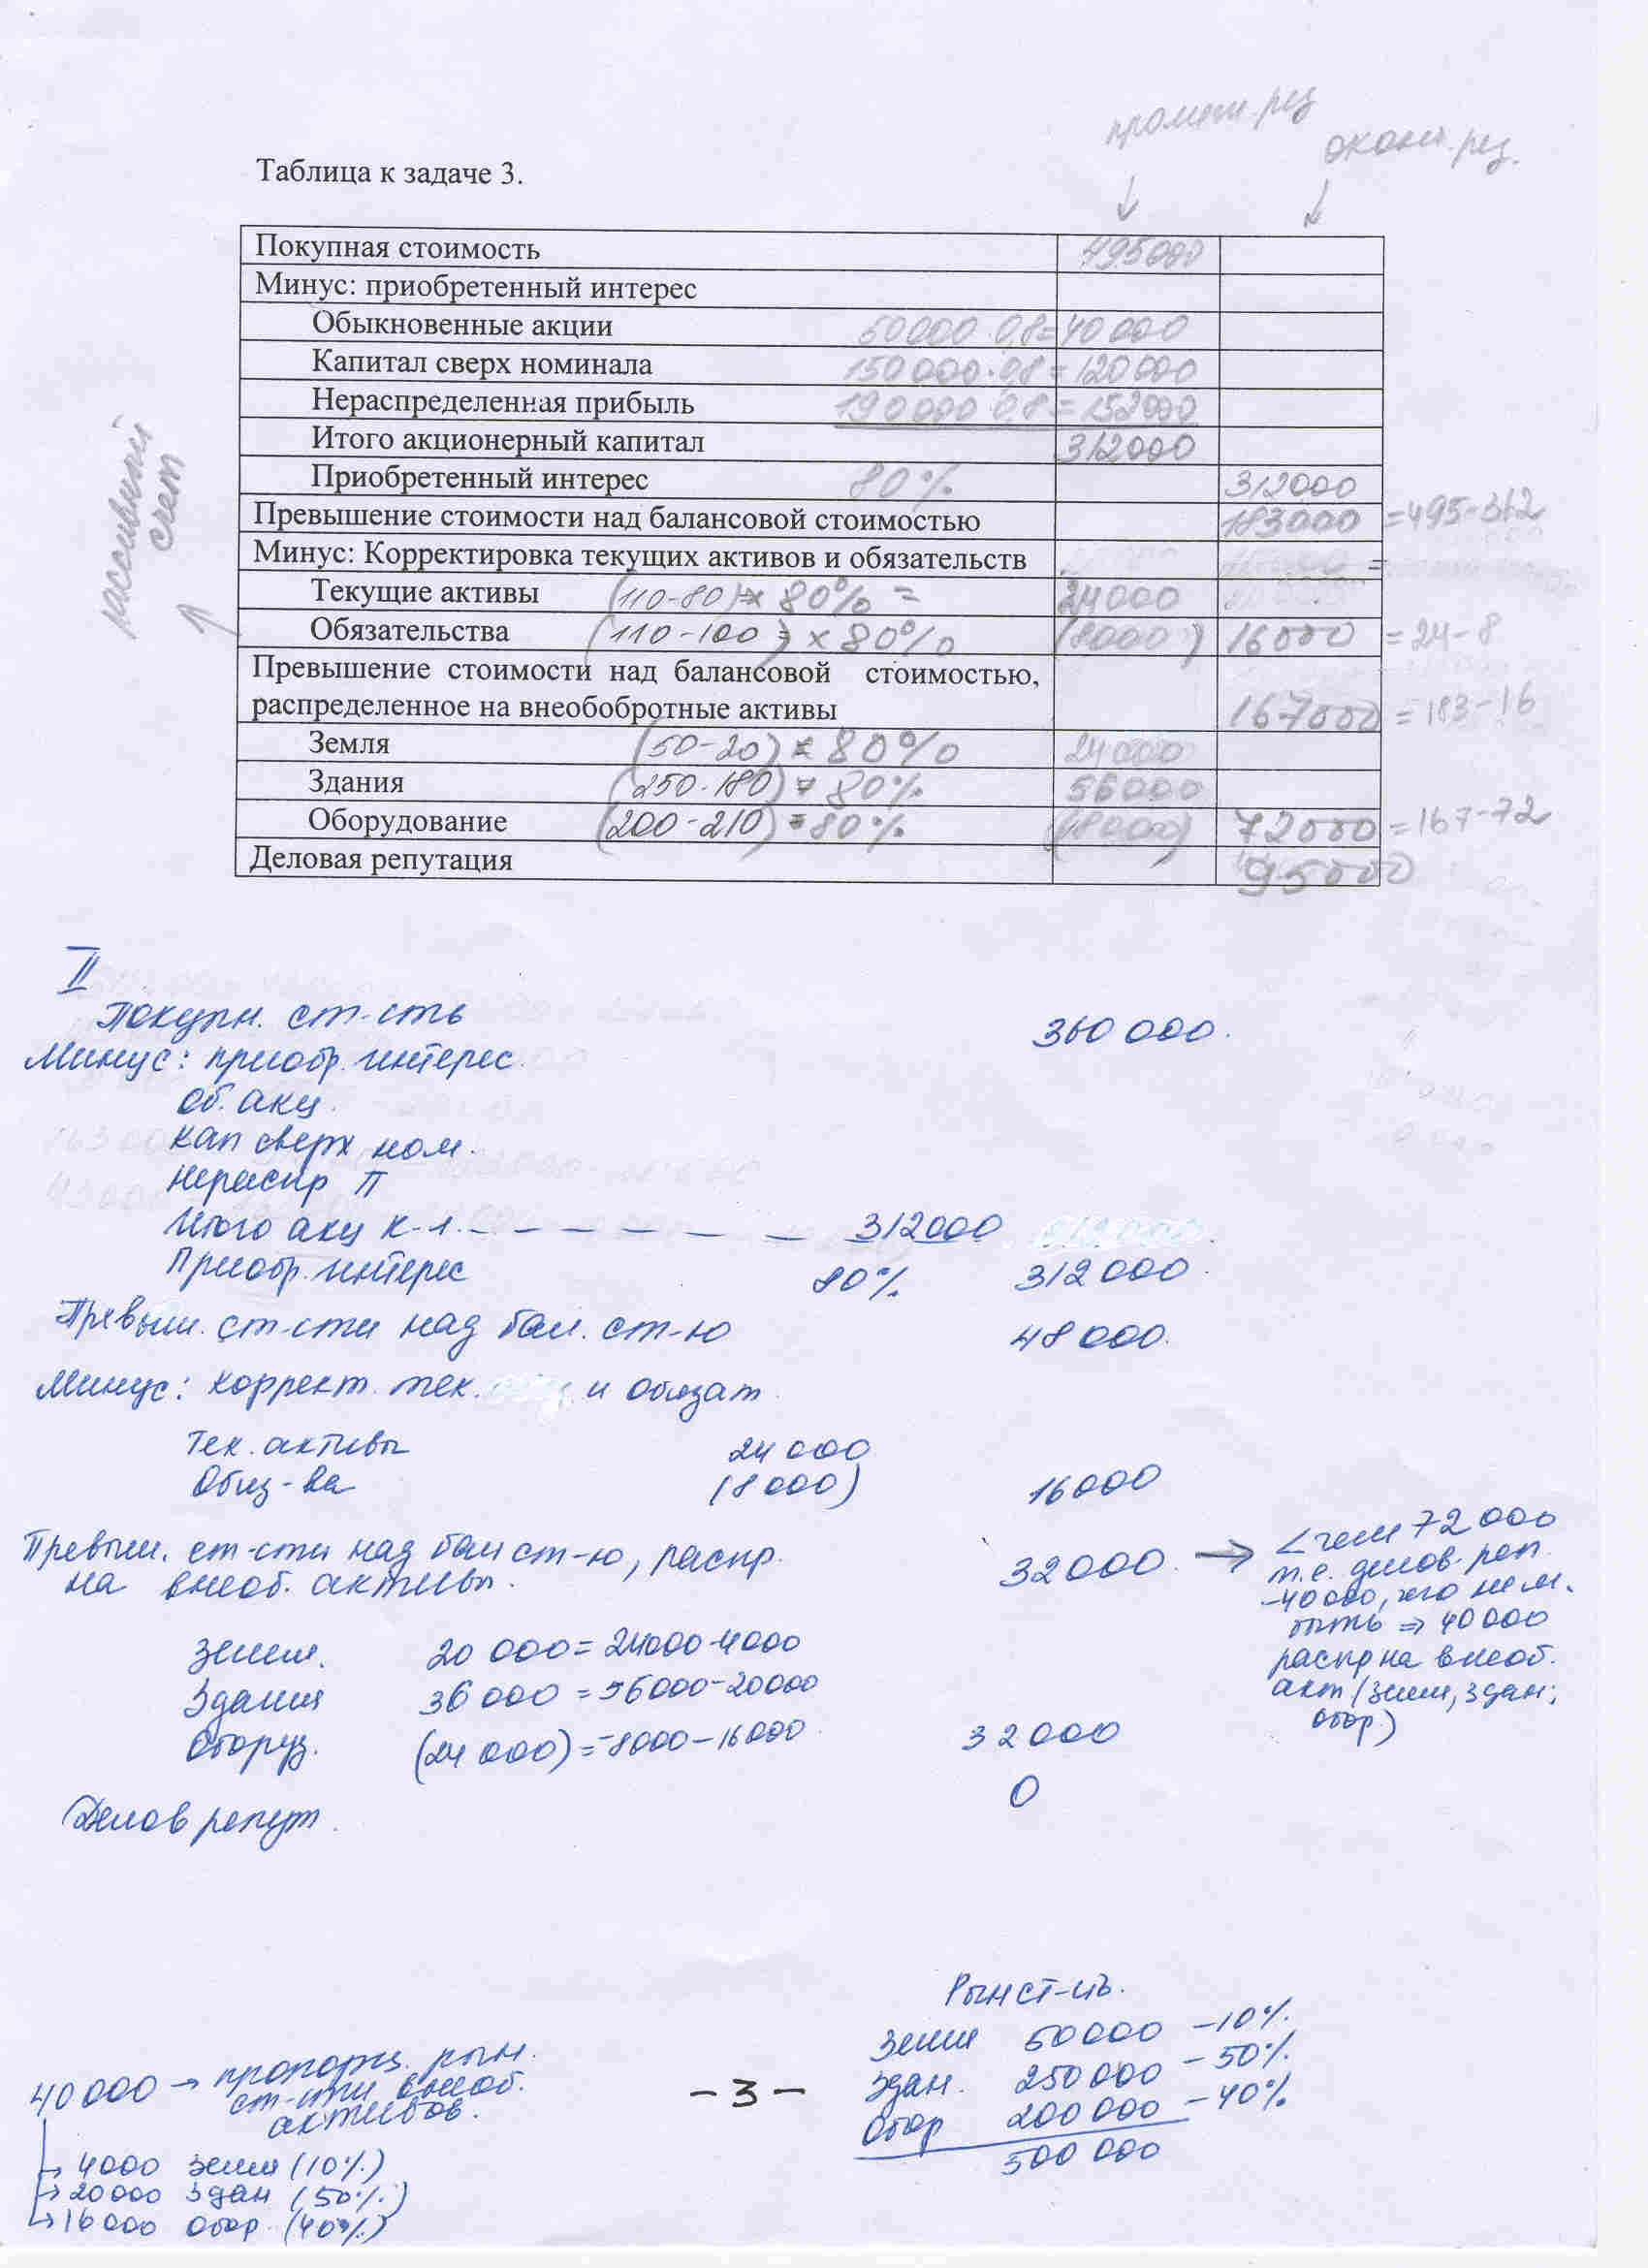 промеж. рез
оконч. рез.
Таблица к задаче 3.
Покупная стоимость 495000
Минус: приобретенный интерес
Обыкновенные акции 50000 · 0,8 = 40 000
Капитал сверх номинала 150 000 · 0,8 = 120 000
Нераспределенная прибыль 190 000 · 0,8 = 152000
Итого акционерный капитал 312000
Приобретенный интерес 80% 312000
Превышение стоимости над балансовой стоимостью 183000 = 495-312
Минус: Корректировка текущих активов и обязательств =
Текущие активы (110-80) × 80% = 24000
Обязательства (110-100) × 80% (8000) 16000 = 24-8
Превышение стоимости над балансовой стоимостью,
распределенное на внеобобротные активы 167000 = 183-16
Земля (50-20) × 80% 24000
Здания (250-180) × 80% 56000
Оборудование (200-210) × 80% (8000) 72000 = 167-72
Деловая репутация 95000
пассивный
счет
II
Покупн. ст-сть 360 000.
Минус: приобр. интерес
Об. акц.
кап сверх ном.
Нераспр П
Итого акц к-л. – – – – – – 312000
Приобр. интерес 80% 312 000
Превыш. ст-сти над бал. ст-ю 48 000.
Минус: коррект. тек. и обязат
Тек. активы 24 000
Обяз-ва (8 000) 16000
Превыш. ст-сти над бал ст-ю, распр.
на внеоб. активы. 32000. →
< чем 72 000
т.е. делов. реп.
-40 000, чего не м.
быть ⇒ 40 000
распр на внеоб.
акт (земл, здан;
обор.)
Земл. 20 000 = 24000-4000
Здания 36 000 = 56000-20000
Оборуд. (24 000) = -8000-16000 32000
0
Делов репут.
Рын ст-ть.
Земля 50000 - 10%
Здан. 250000 - 50%
Обор 200 000 - 40%
500 000
- 3 -
40 000 → пропорц. рын.
ст-сти внеоб.
активов.
→ 4000 земля (10%)
→ 20000 здан (50%)
→ 16 000 обор. (40%)